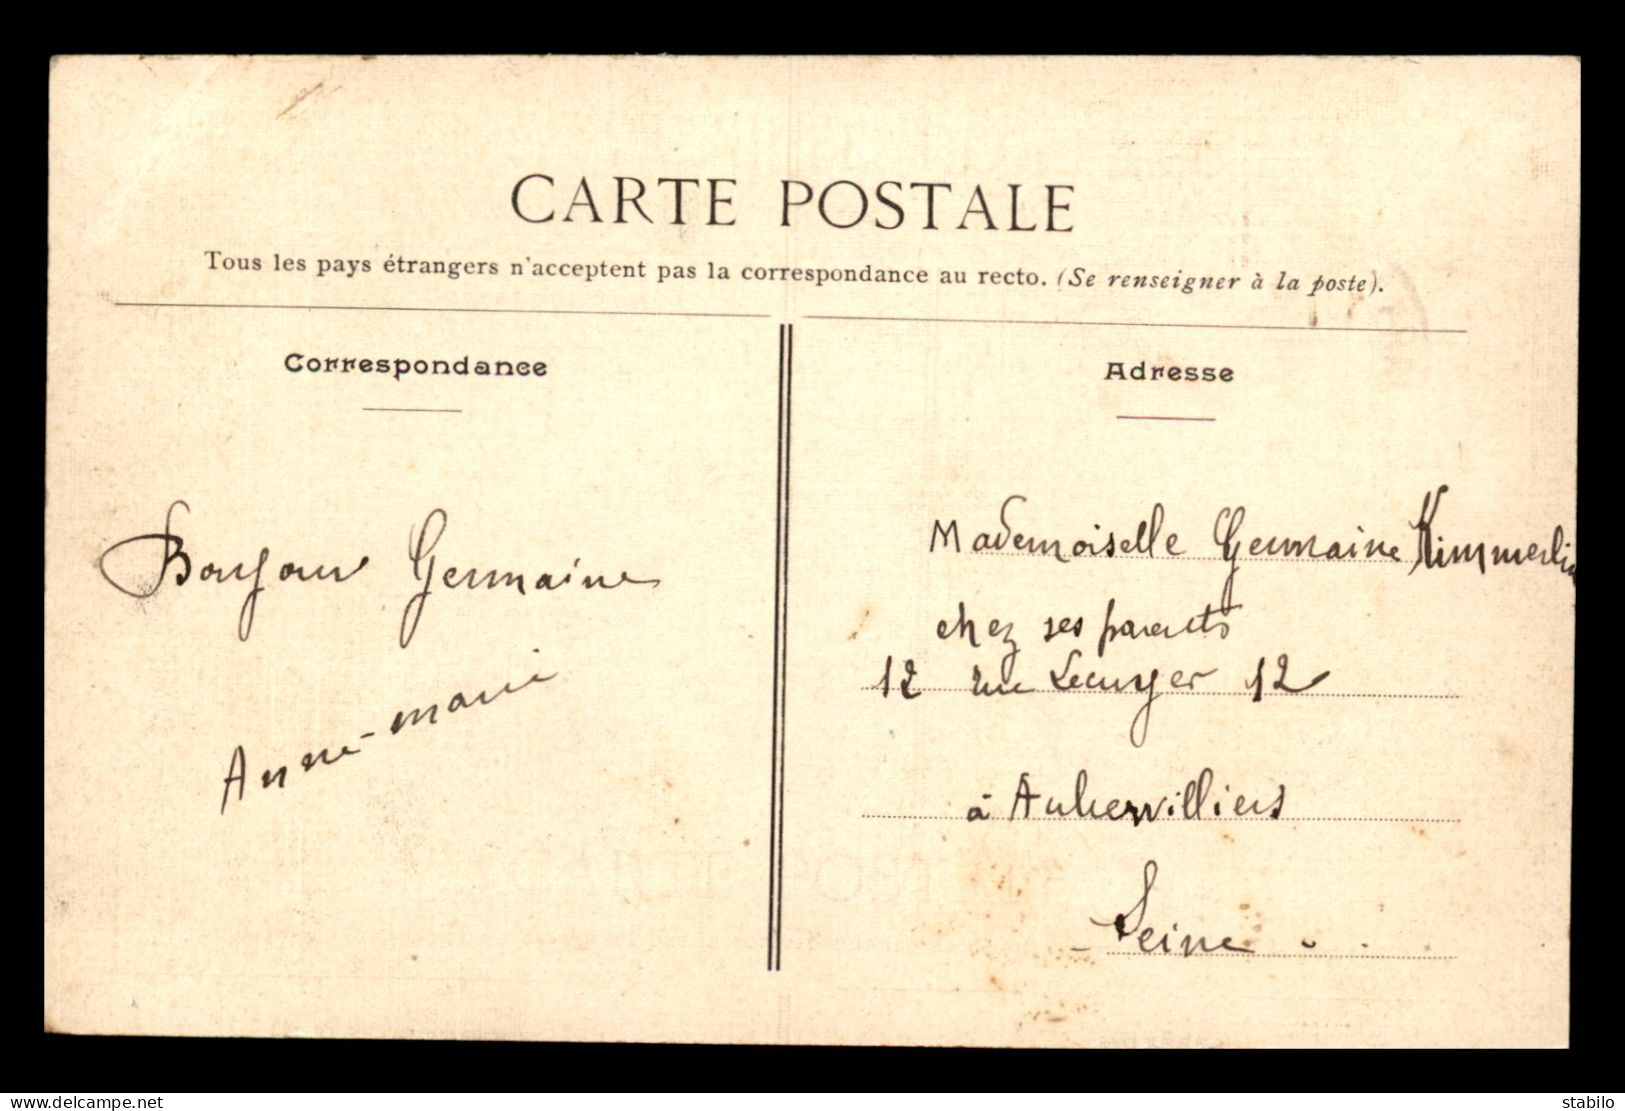 CARTE POSTALE
Tous les pays étrangers n'acceptent pas la correspondance au recto. (Se renseigner à la poste).
Correspondance
Bonjour Germaine
Anne-marie
Adresse
Mademoiselle Germaine Kimmerlin
chez ses parents
12 rue Lecuyer 12
à Aubervilliers
Seine
www.delcampe.net
stabilo